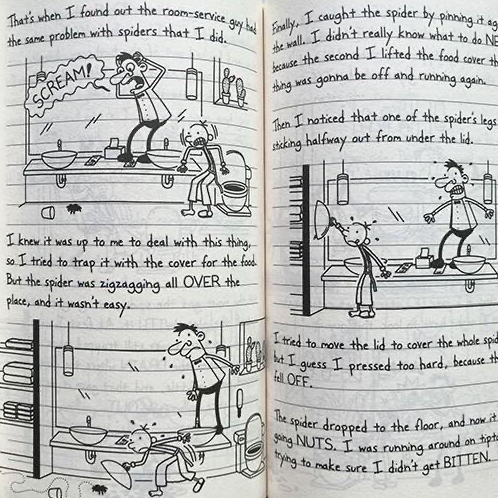 That's when I found out the room-service guy had
the same problem with spiders that I did.
SCREAM!
I knew it was up to me to deal with this thing,
so I tried to trap it with the cover for the food.
But the spider was zigzagging all OVER the
place, and it wasn't easy.
Finally, I caught the spider by pinning it
the wall. I didn't really know what to do
because the second I lifted the food cover
thing was gonna be off and running again.
Then I noticed that one of the spider's legs
sticking halfway out from under the lid.
I tried to move the lid to cover the whole
but I guess I pressed too hard, because
fell OFF.
The spider dropped to the floor, and now
going NUTS. I was running around on
trying to make sure I didn't get BITTEN.